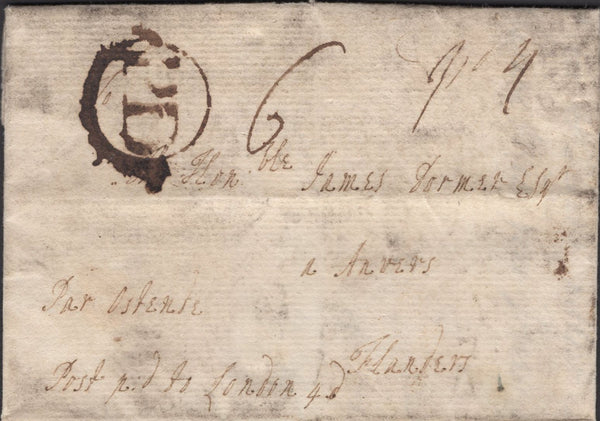 6 pd 4
Hon.ble James Dormer Esqr
a Anvers
Par Ostende
Flanders
Post p.d to London 4d